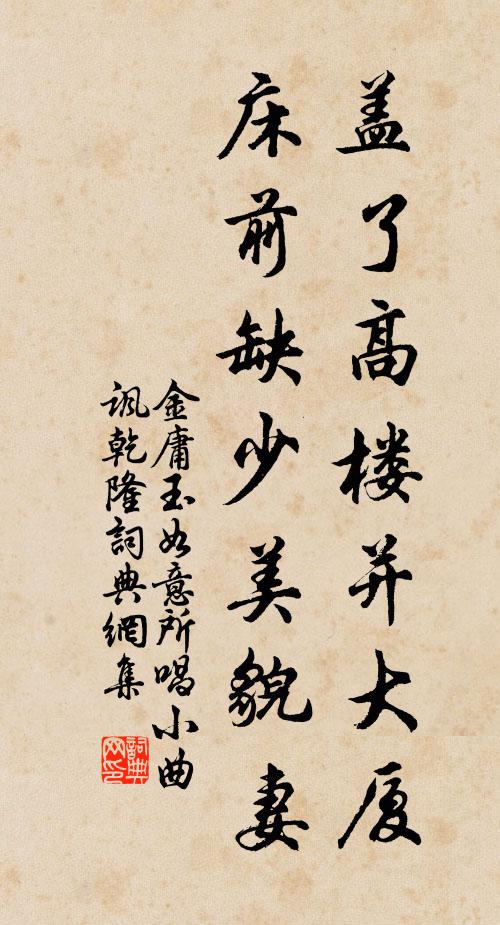 盖了高楼并大厦
床前缺少美貌妻
金庸玉如意所唱小曲
讽乾隆詞典網集
詞典
网印